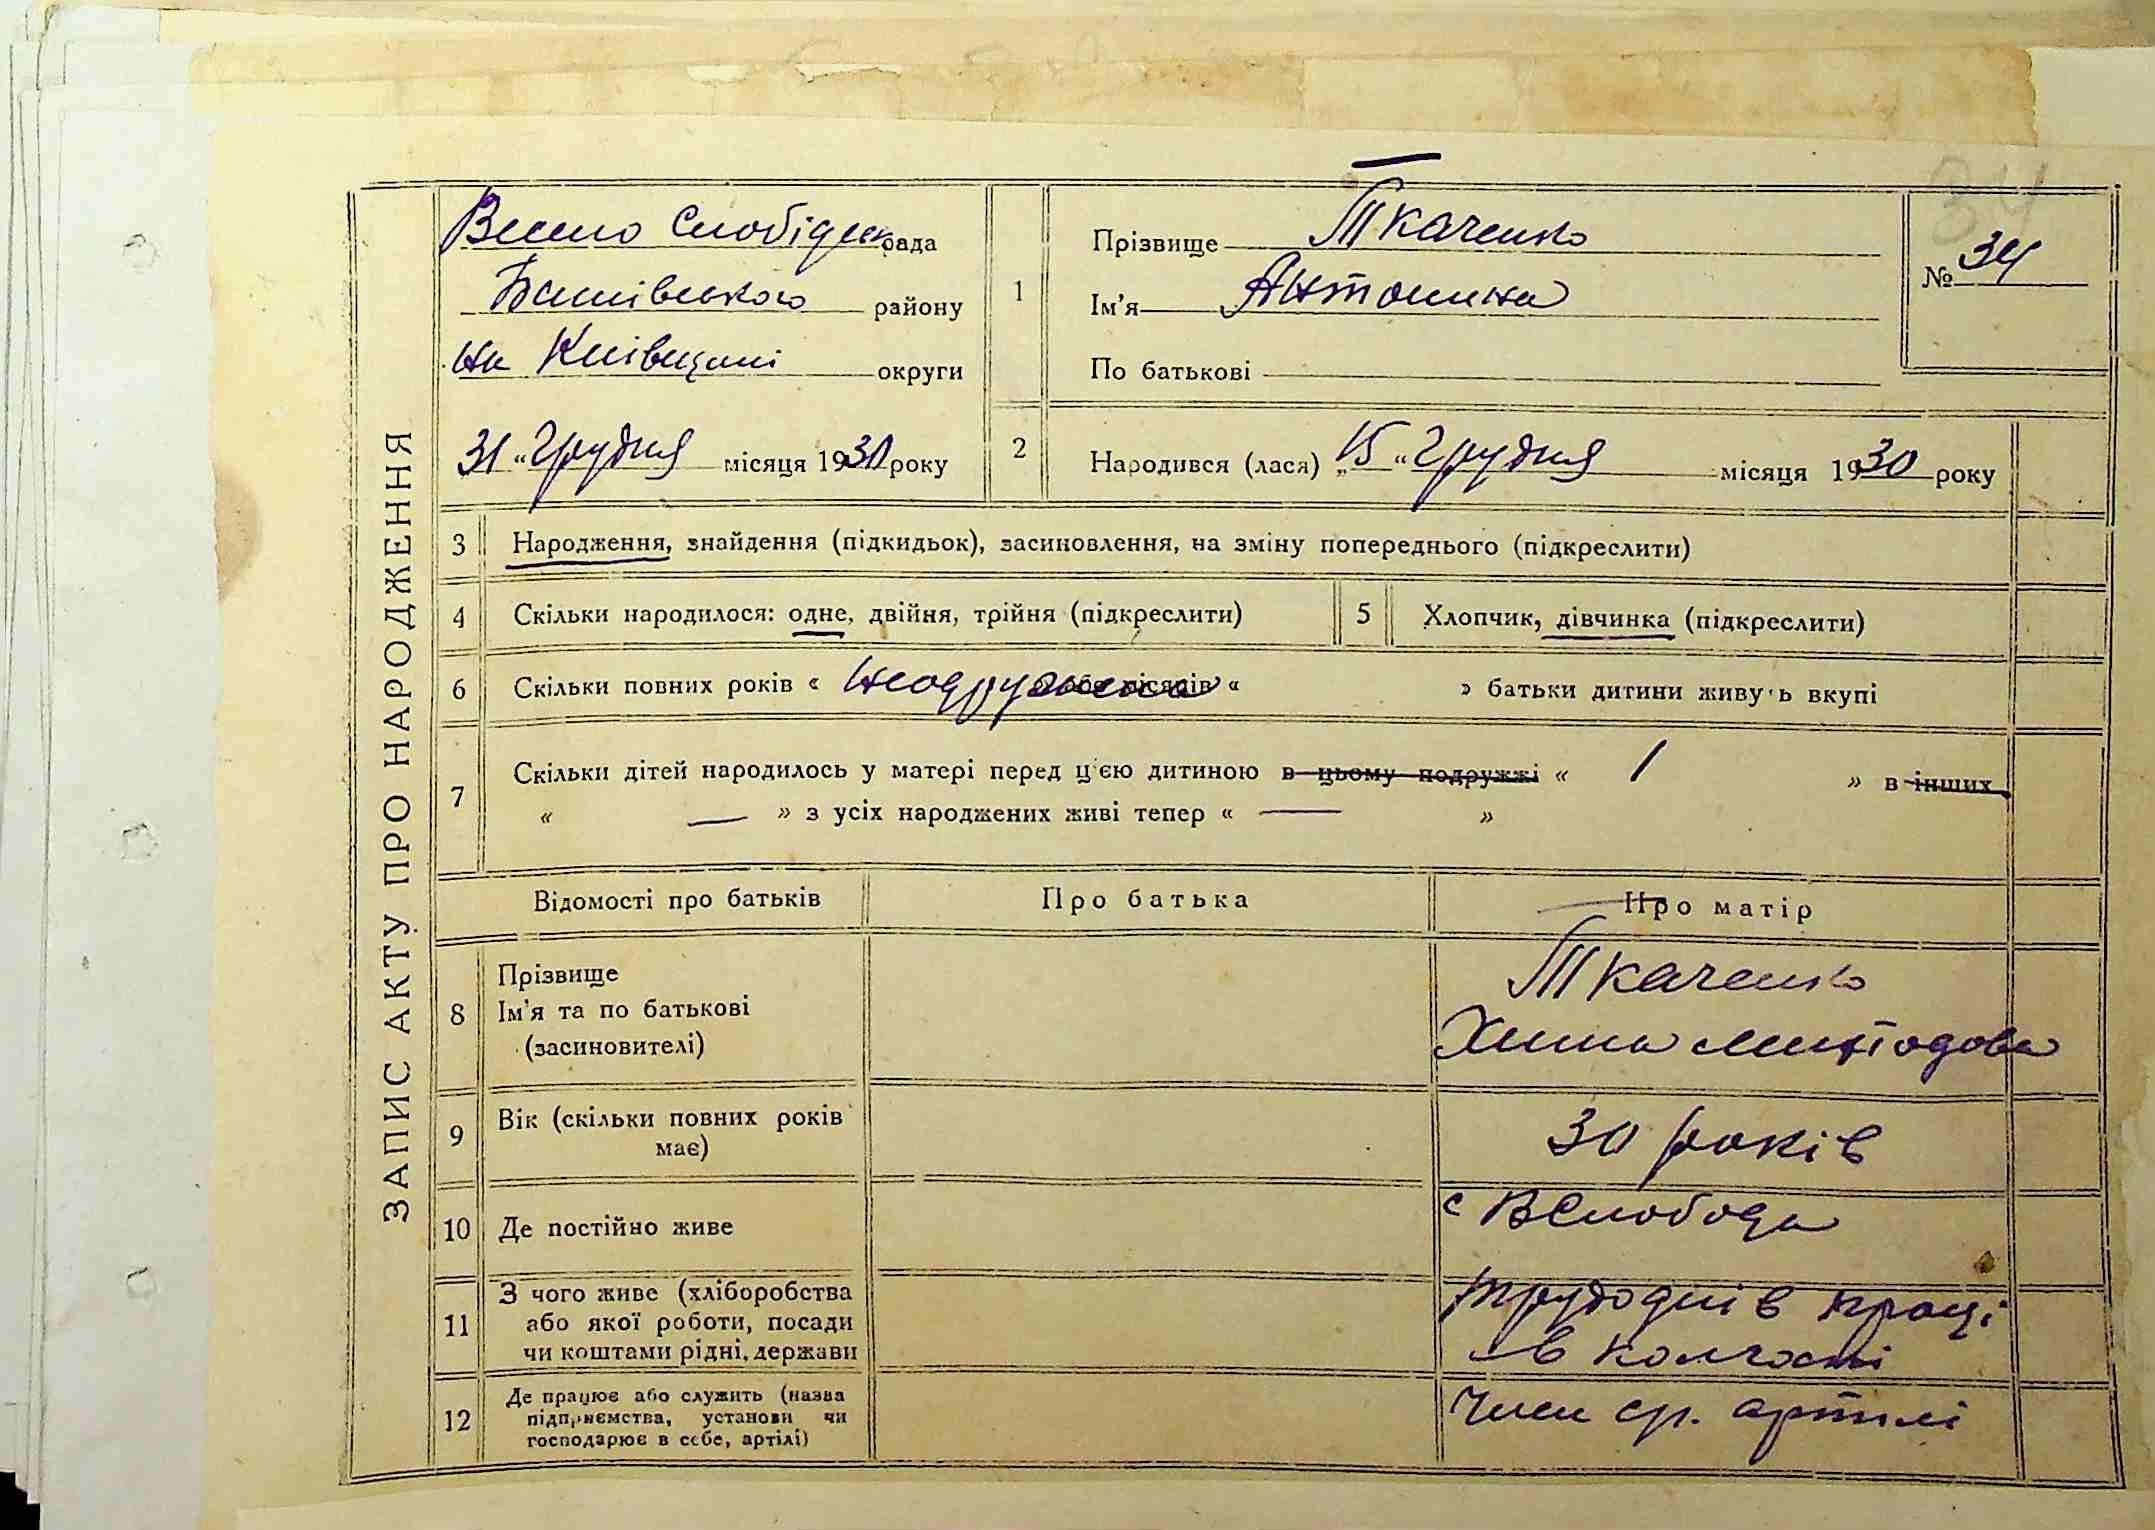 34
ЗАПИС АКТУ ПРО НАРОДЖЕННЯ
Весело Слобідськ рада
району
на Київщині округи
31 " Грудня місяця 1930 року
1
Прізвище Ткаченко
Ім'я Антонина
По батькові
№ 34
2
Народився (лася) „ 15 " Грудня місяця 1930 року
3 Народження, знайдення (підкидьок), засиновлення, на зміну попереднього (підкреслити)
4 Скільки народилося: одне, двійня, трійня (підкреслити)
5 Хлопчик, дівчинка (підкреслити)
6 Скільки повних років « або місяців « » батьки дитини живуть вкупі
7 Скільки дітей народилось у матері перед цією дитиною в цьому подружжі « 1 » в інших
« — » з усіх народжених живі тепер « — »
Відомості про батьків
Про батька
Про матір
8 Прізвище
Ім'я та по батькові
(засиновителі)
Ткаченко
9 Вік (скільки повних років
має)
30 років
10 Де постійно живе
с ВСлобода
11 З чого живе (хліборобства
або якої роботи, посади
чи коштами рідні, держави
трудоднів праці
в колгоспі
12 Де працює або служить (назва
підприємства, установи чи
господарює в себе, артілі)
Член ср. артілі